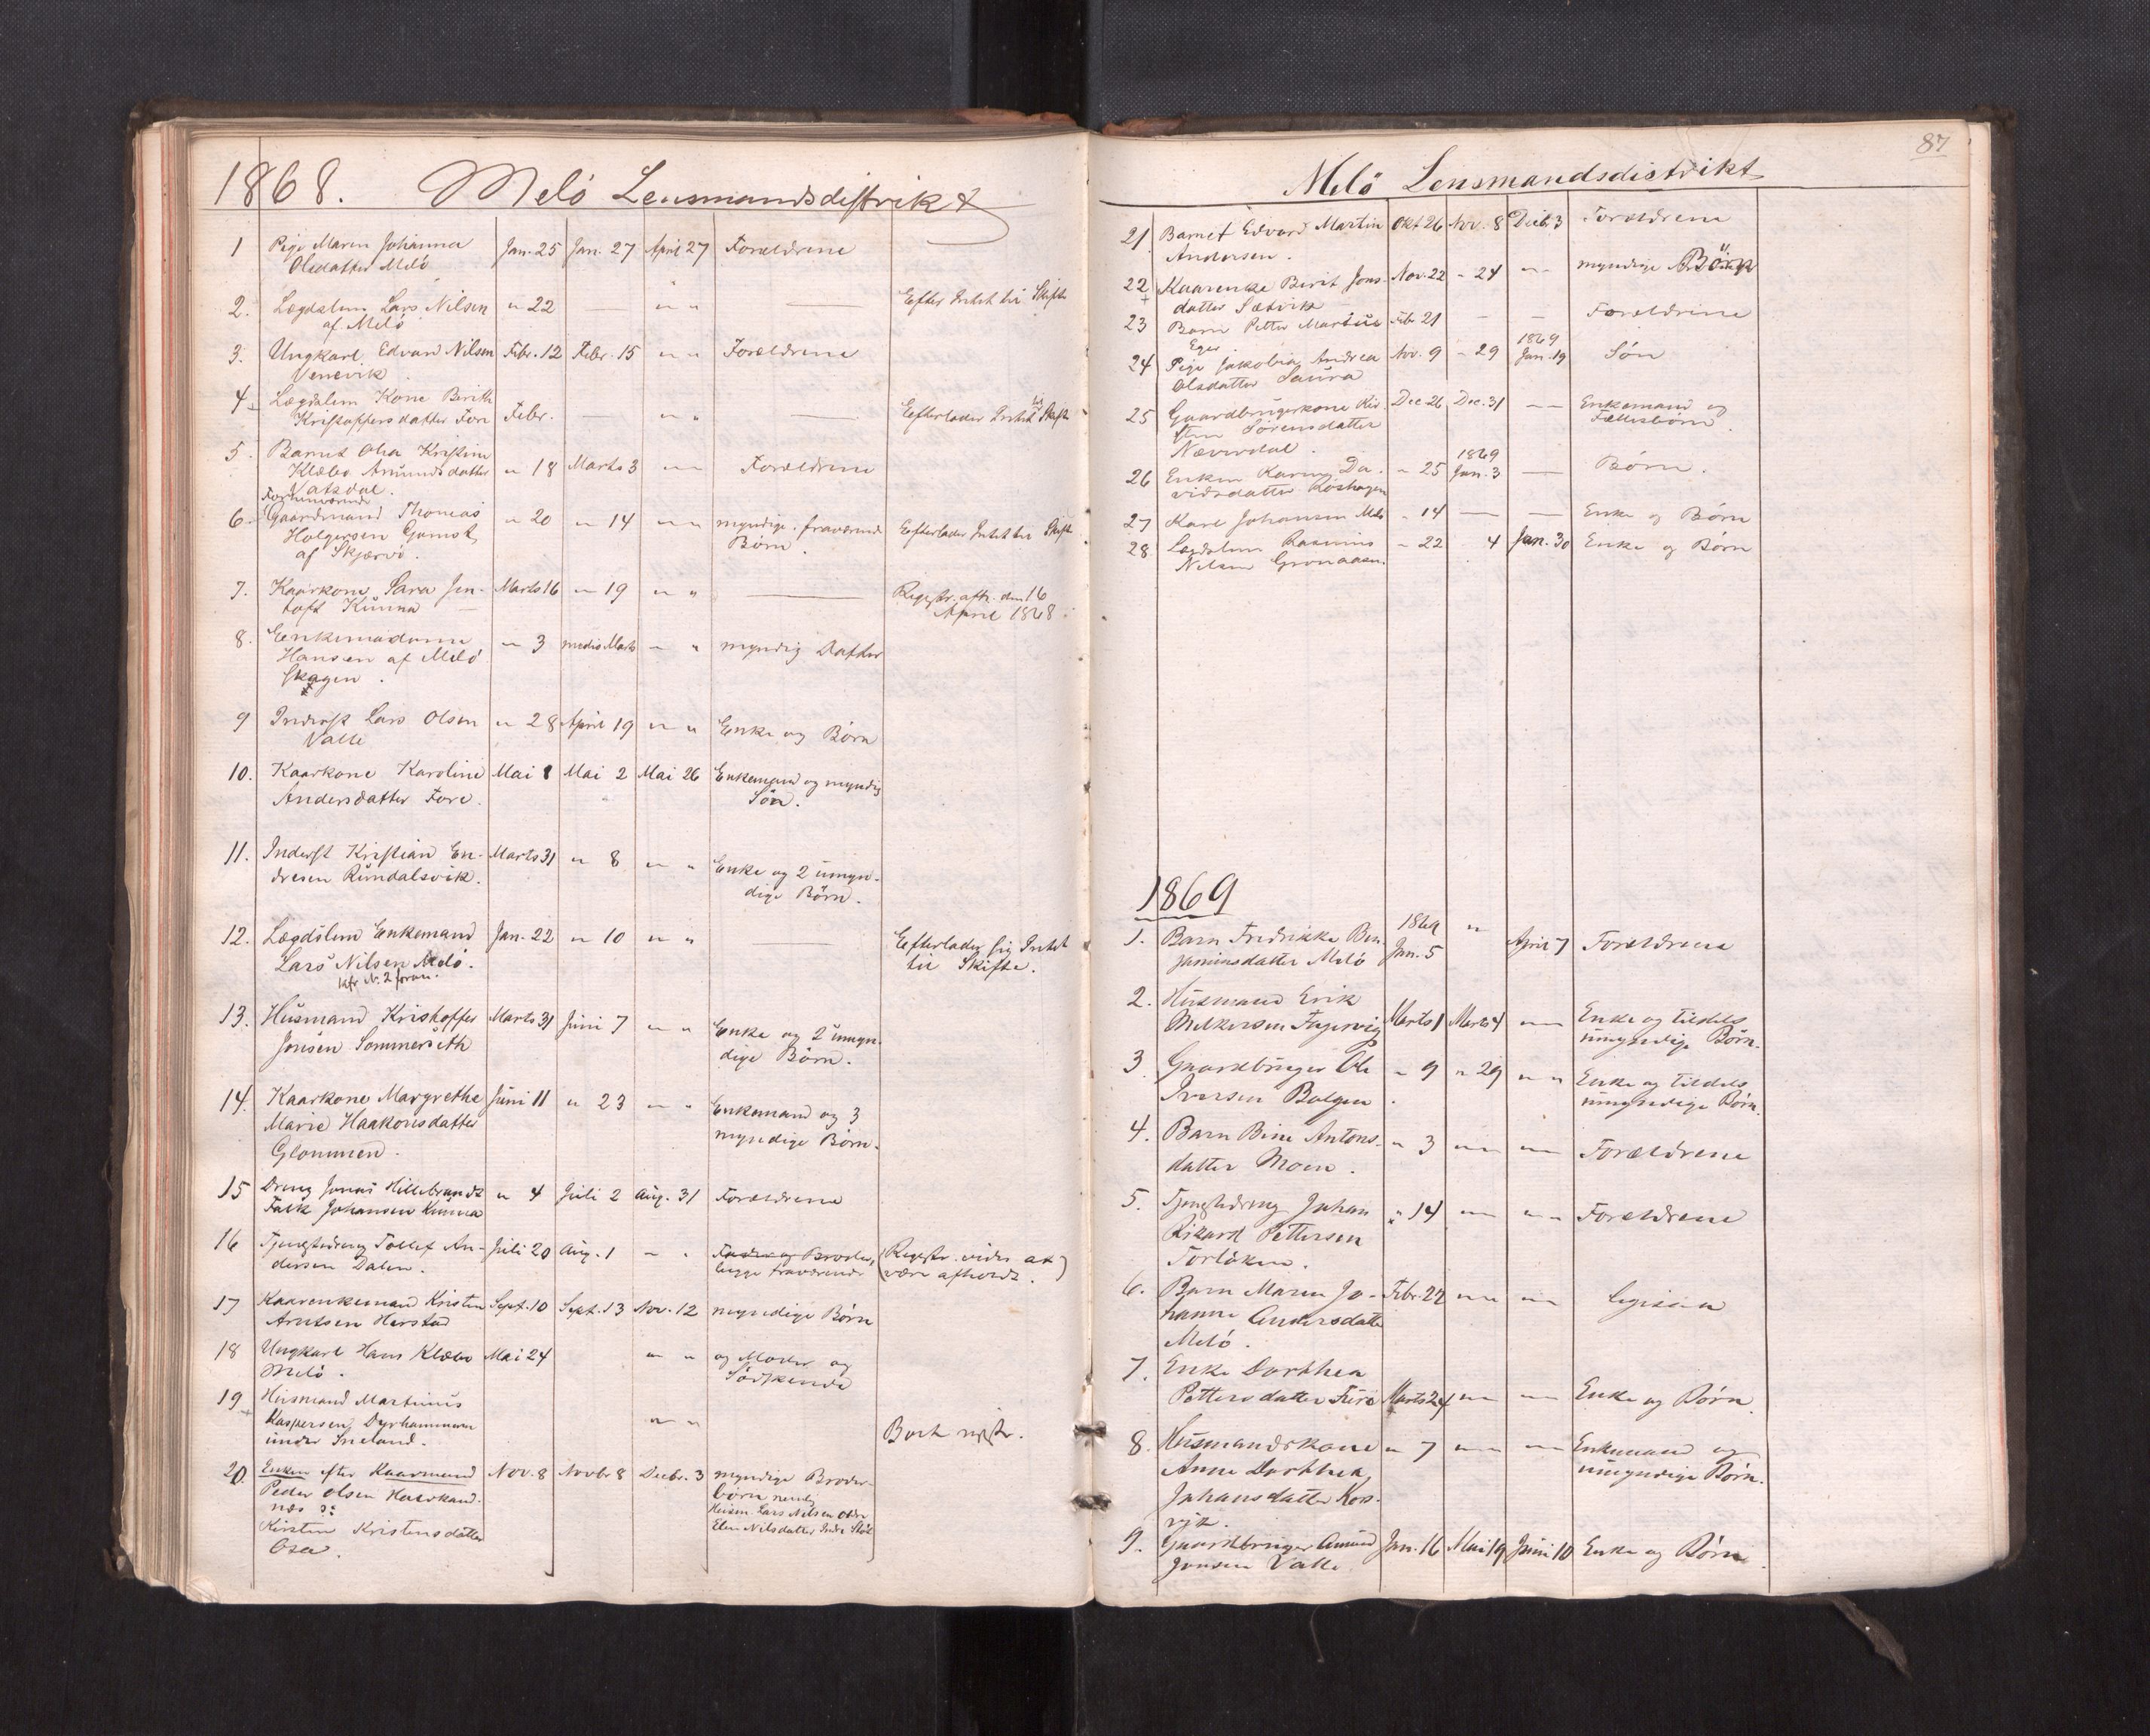 1868. Melö Lensmandsdistrikt
1 Pige Maren Johanna Jan. 25 Jan. 27 April 27 Forældrene
Olsdatter Melö
2. Lægdslem Lars Nilsen " 22 — " " — Efter Intet til Skifte
af Melö
3. Ungkarl Edvard Nilsen Febr. 12 Febr. 15 " " Forældrene
Venevik
4 Lægdslem Kone Berith Febr. — " " — Efterlader Intet til Skifte
Kristoffersdatter Fore
5. Barnet Olea Kristine
Klæbo Amundsdatter " 18 Marts 3 " " Forældrene
Vatsdal.
Forhenværende
6. Gaardmand Thomas " 20 " 14 " " myndige fraværende Efterlader Intet til Skifte
Holgersen Gamst Börn.
af Skjærvö.
7. Kaarkone Sara Jen- Marts 16 " 19 " " — Registr. afh. den 16
toft Kunna April 1868.
8. Enkemadame " 3 medio Marts " " myndig Datter
Hansen af Melö
Skagen.
9 Inderst Lars Olsen " 28 April 19 " " Enke og Börn
Valle
10. Kaarkone Karoline Mai 1 Mai 2 Mai 26 Enkemand og myndig
Andersdatter Fore. Sön.
11. Inderst Kristian En- Marts 31 " 8 " " Enke og 2 umyn-
dresen Rundalsvik. dige Börn.
12. Lægdslem Enkemand Jan. 22 " 10 " " — Efterlader sig Intet
Lars Nilsen Melö. til Skifte.
kfr N. 2 foran.
13. Husmand Kristoffer Marts 31 Juni 7 " " Enke og 2 umyn-
Jonsen Sommerseth dige Börn.
14. Kaarkone Margrethe Juni 11 " 23 " " Enkemand og 3
Marie Haakonsdatter myndige Börn.
Glommen.
15 Dreng Jonas Hillebrandt " 4 Juli 2 Aug. 31 Forældrene
Falk Johansen Kunna
16 Tjenestedreng Tollef An- Juli 20 Aug. 1 " " Fader og Broder, (Registr. vides at
dersen Dalen. begge fraværende være afholdt.)
17 Kaarenkemand Kristen Sept. 10 Sept. 13 Nov. 12 myndige Börn
Arntsen Herstad
18 Ungkarl Hans Klæbo Mai 24 " " og Moder og
Melö. Södskende
19 Husmand Martinus
Kaspersen Dyrhammern " " Bort registr.
under Sneland.
20. Enken efter Kaarmand Nov. 8 Novbr 8 Decbr. 3 myndige Broder-
Peder Olsen börn nemlig
næs ɔ: Lars Nilsen
Kirsten Kristensdatter Elen Nilsdatter Indre
Osa.
87
Melö Lensmandsdistrikt
21 Barnet Edvard Martin Okt 26 Nov. 8 Decbr 3 Forældrene
Andersen.
22 Kaarenke Berit Jons- Nov. 22 " 24 " " myndige Börn
datter Sætvik
23 Barn Petter Martin Febr 21 — — Forældrene
1869
24 Pige Jakobia Andrea Nov. 9 " 29 Jan. 19 Sön
Olsdatter Saura
25 Gaardbrugerkone Kir- Dec 26 Dec. 31 " " Enkemand og
sten Sörensdatter Fællesbörn.
Næverdal.
1869
26 Enken Karen Da- " 25 Jan. 3 — Börn.
vidsdatter
27 Karl Johansen Melö " 14 — — Enke og Börn
28 Lægdslem Rasmus " 22 4 Jan. 30 Enke og Börn
Nilsen Grönaasen.
1869
1. Barn Fredrikke Ben- 1869 " April 7 Forældrene
jaminsdatter Melö Jan. 5
2. Husmand Erik
Melkersen Fagervig Marts 1 Marts 4 " " Enke og tildels
umyndige Börn.
3 Gaardbruger Ole " 9 " 29 " " Enke og tildels
Iversen Bolgen. umyndige Börn.
4. Barn Bine Antons- " 3 " " " " Forældrene
datter Moen.
5. Tjenestedreng Johan " 14 " " " " Forældrene
Rikard Pettersen
6. Barn Maren Jo- Febr. 22 " " " " Ligesaa
hanne Andersdatter
Melö.
7. Enke Dorthea
Pettersdatter Furö Marts 24 " " " " Enke og Börn.
8. Husmandskone " 7 " " " " Enkemand og
Anne Dorthea umyndige Börn.
Johansdatter Kors-
vik.
9. Gaardbruger Amund Jan. 16 Mai 19 Juni 10 Enke og Börn.
Jonsen Valle